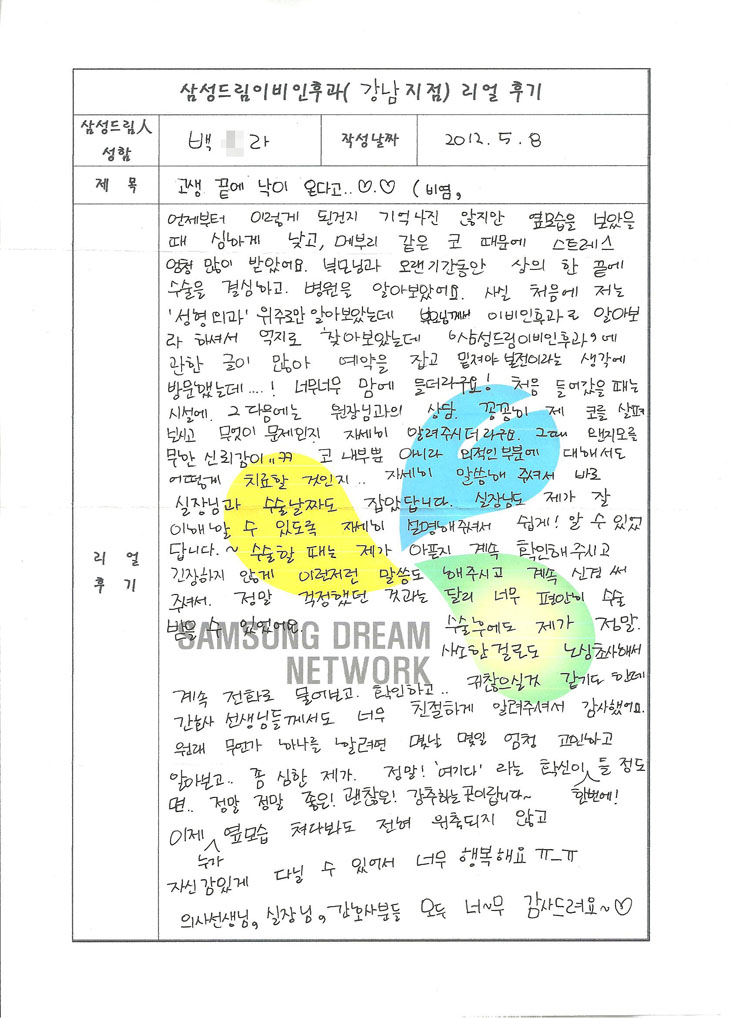 삼성드림이비인후과( 강남지점) 리얼 후기
삼성드림人 성함
백 라
작성날짜
2012. 5. 8
제 목
고생 끝에 낙이 온다고..♡.♡ (비염,
리얼 후기
언제부터 이렇게 된건지 기억나진 않지만 옆모습을 보았을
때 심하게 낮고, 메부리 같은 코 때문에 스트레스
엄청 많이 받았어요. 부모님과 오랜기간동안 상의 한 끝에
수술을 결심하고. 병원을 알아보았어요. 사실 처음에 저는
'성형외과' 위주로만 알아보았는데 부모님께서 이비인후과로 알아보
라 하셔서 억지로 찾아보았는데 '삼성드림이비인후과'에
관한 글이 많아 예약을 잡고 밑져야 본전이라는 생각에
방문했는데....! 너무너무 맘에 들더라구요! 처음 들어갔을 때는
시설에. 그 다음에는 원장님과의 상담. 꼼꼼히 제 코를 살펴
보시고 무엇이 문제인지 자세히 알려주시더라구요. 그때 왠지모를
무한 신뢰감이..ㅋㅋ 코 내부뿐 아니라 외적인 부분에 대해서도
어떻게 치료할 것인지.. 자세히 말씀해 주셔서 바로
실장님과 수술날짜도 잡았답니다. 실장님도 제가 잘
이해 할 수 있도록 자세히 설명해주셔서 쉽게! 알 수 있었
답니다.~ 수술할 때는 제가 아픈지 계속 확인해주시고
긴장하지 않게 이런저런 말씀도 해주시고 계속 신경 써
주셔서. 정말 걱정했던 것과는 달리 너무 편안히 수술
받을 수 있었어요. 수술후에도 제가 정말.
SAMSUNG DREAM NETWORK
사소한걸로도 노심초사해서
계속 전화로 물어보고. 확인하고.. 귀찮으실거 같기도 한데
간호사 선생님들께서도 너무 친절하게 알려주셔서 감사했어요.
원래 무언가 하나를 알려면 몇날 몇일 엄청 고민하고
알아보고.. 좀 심한 제가. 정말! '여기다' 라는 확신이 한번에! 들 정도
면.. 정말 정말 좋은! 괜찮은! 강추하는곳이랍니다~
이제 누가 옆모습 쳐다봐도 전혀 위축되지 않고
자신감있게 다닐 수 있어서 너무 행복해요 ㅠ_ㅠ
의사선생님, 실장님, 간호사분들 모두 너~무 감사드려요~♡